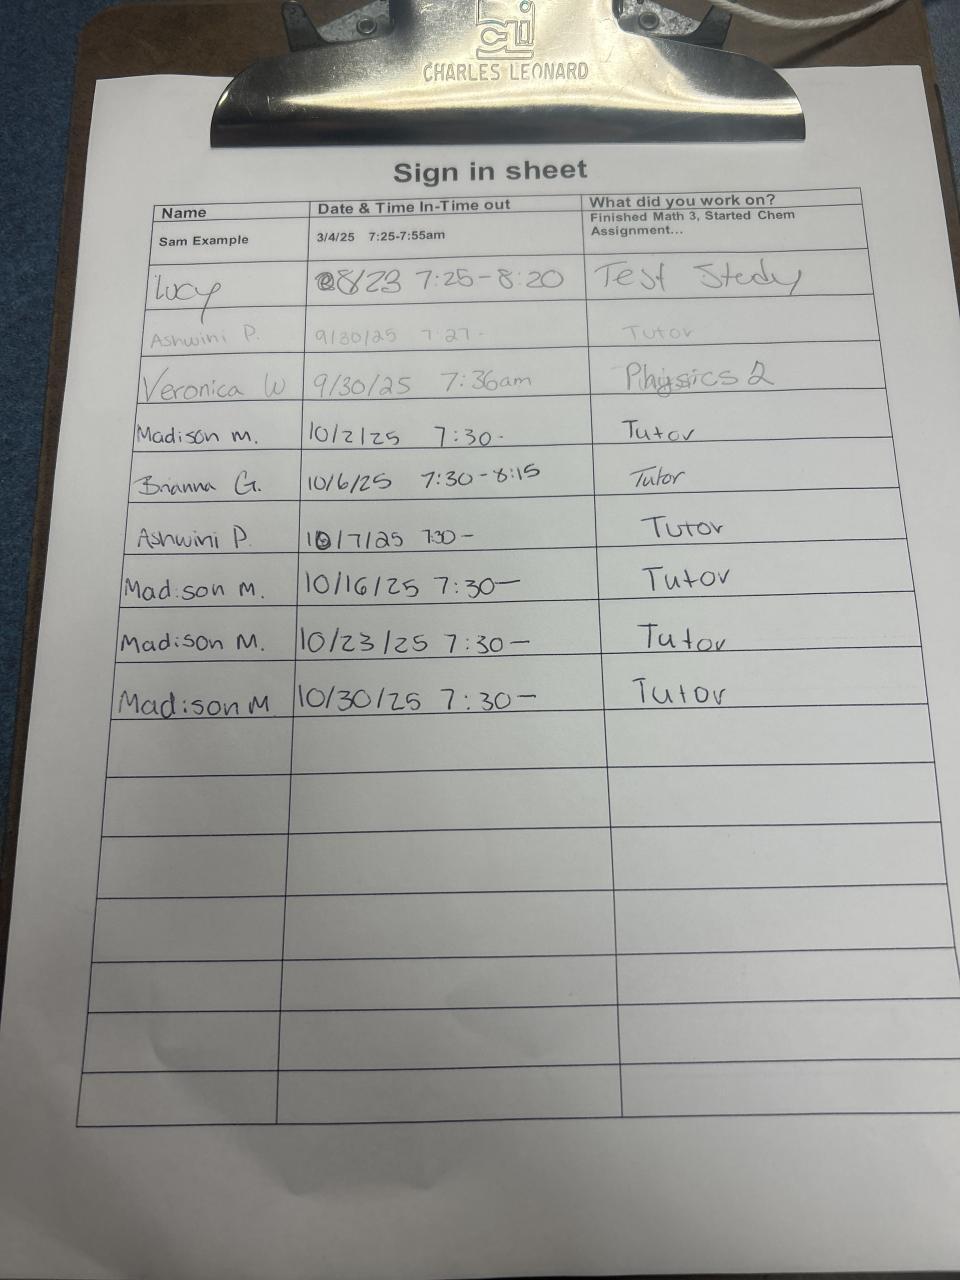 CHARLES LEONARD
Sign in sheet
Name Date & Time In-Time out What did you work on?
Sam Example 3/4/25 7:25-7:55am Finished Math 3, Started Chem
Assignment...
Lucy 8/23 7:25-8:20 Test Study
Ashwini P. 9/30/25 7:27- Tutor
Veronica W 9/30/25 7:36am Physics 2
Madison M. 10/2/25 7:30- Tutor
Brianna G. 10/6/25 7:30-8:15 Tutor
Ashwini P. 10/7/25 7:30- Tutor
Madison M. 10/16/25 7:30- Tutor
Madison M. 10/23/25 7:30- Tutor
Madison M 10/30/25 7:30- Tutor